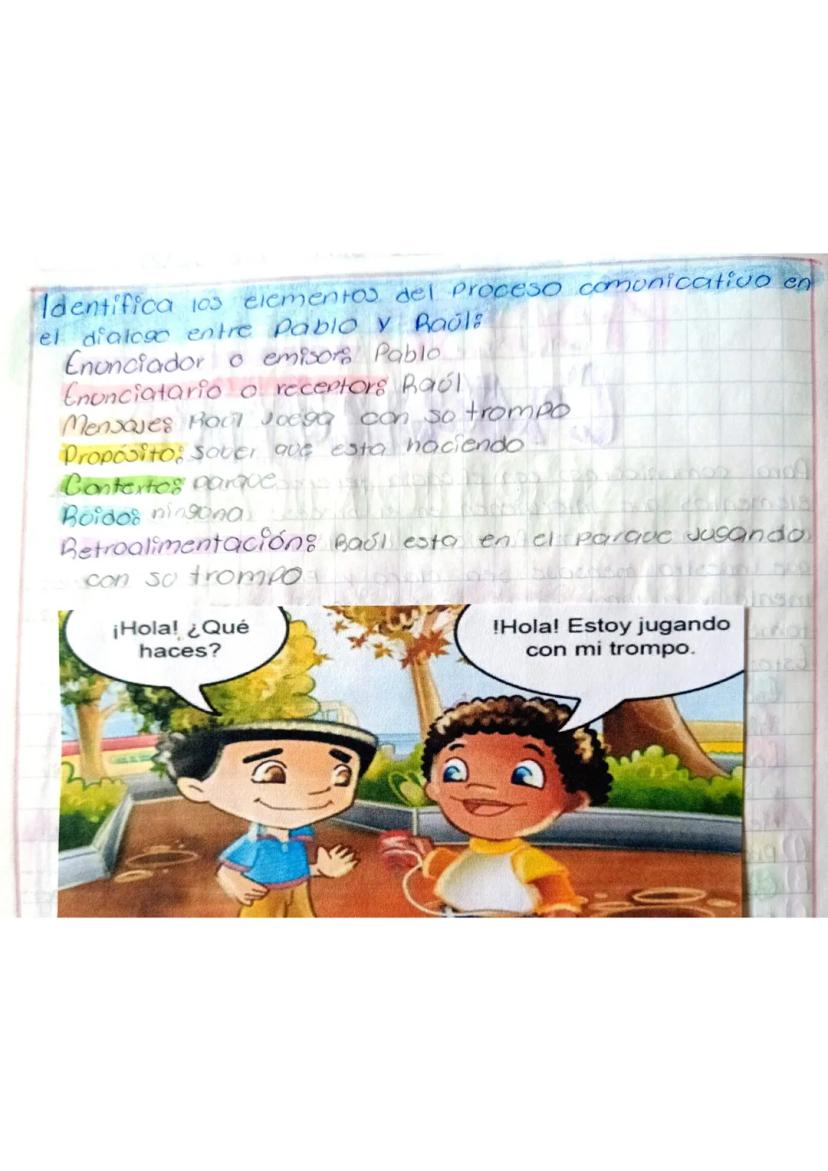 Identifica los elementos del proceso comunicativo en
el dialogo entre Pablo y Raúl:
Enunciador o emisor: Pablo
Enunciatario o receptor: Raúl
Mensaje: Raúl Juega con su trompo
Propósito: saver que esta haciendo
Contexto: parque
Ruido: ninguna
Retroalimentación: Raúl esta en el parque Jugando
con su trompo
¡Hola! ¿Qué
haces?
!Hola! Estoy jugando
con mi trompo.